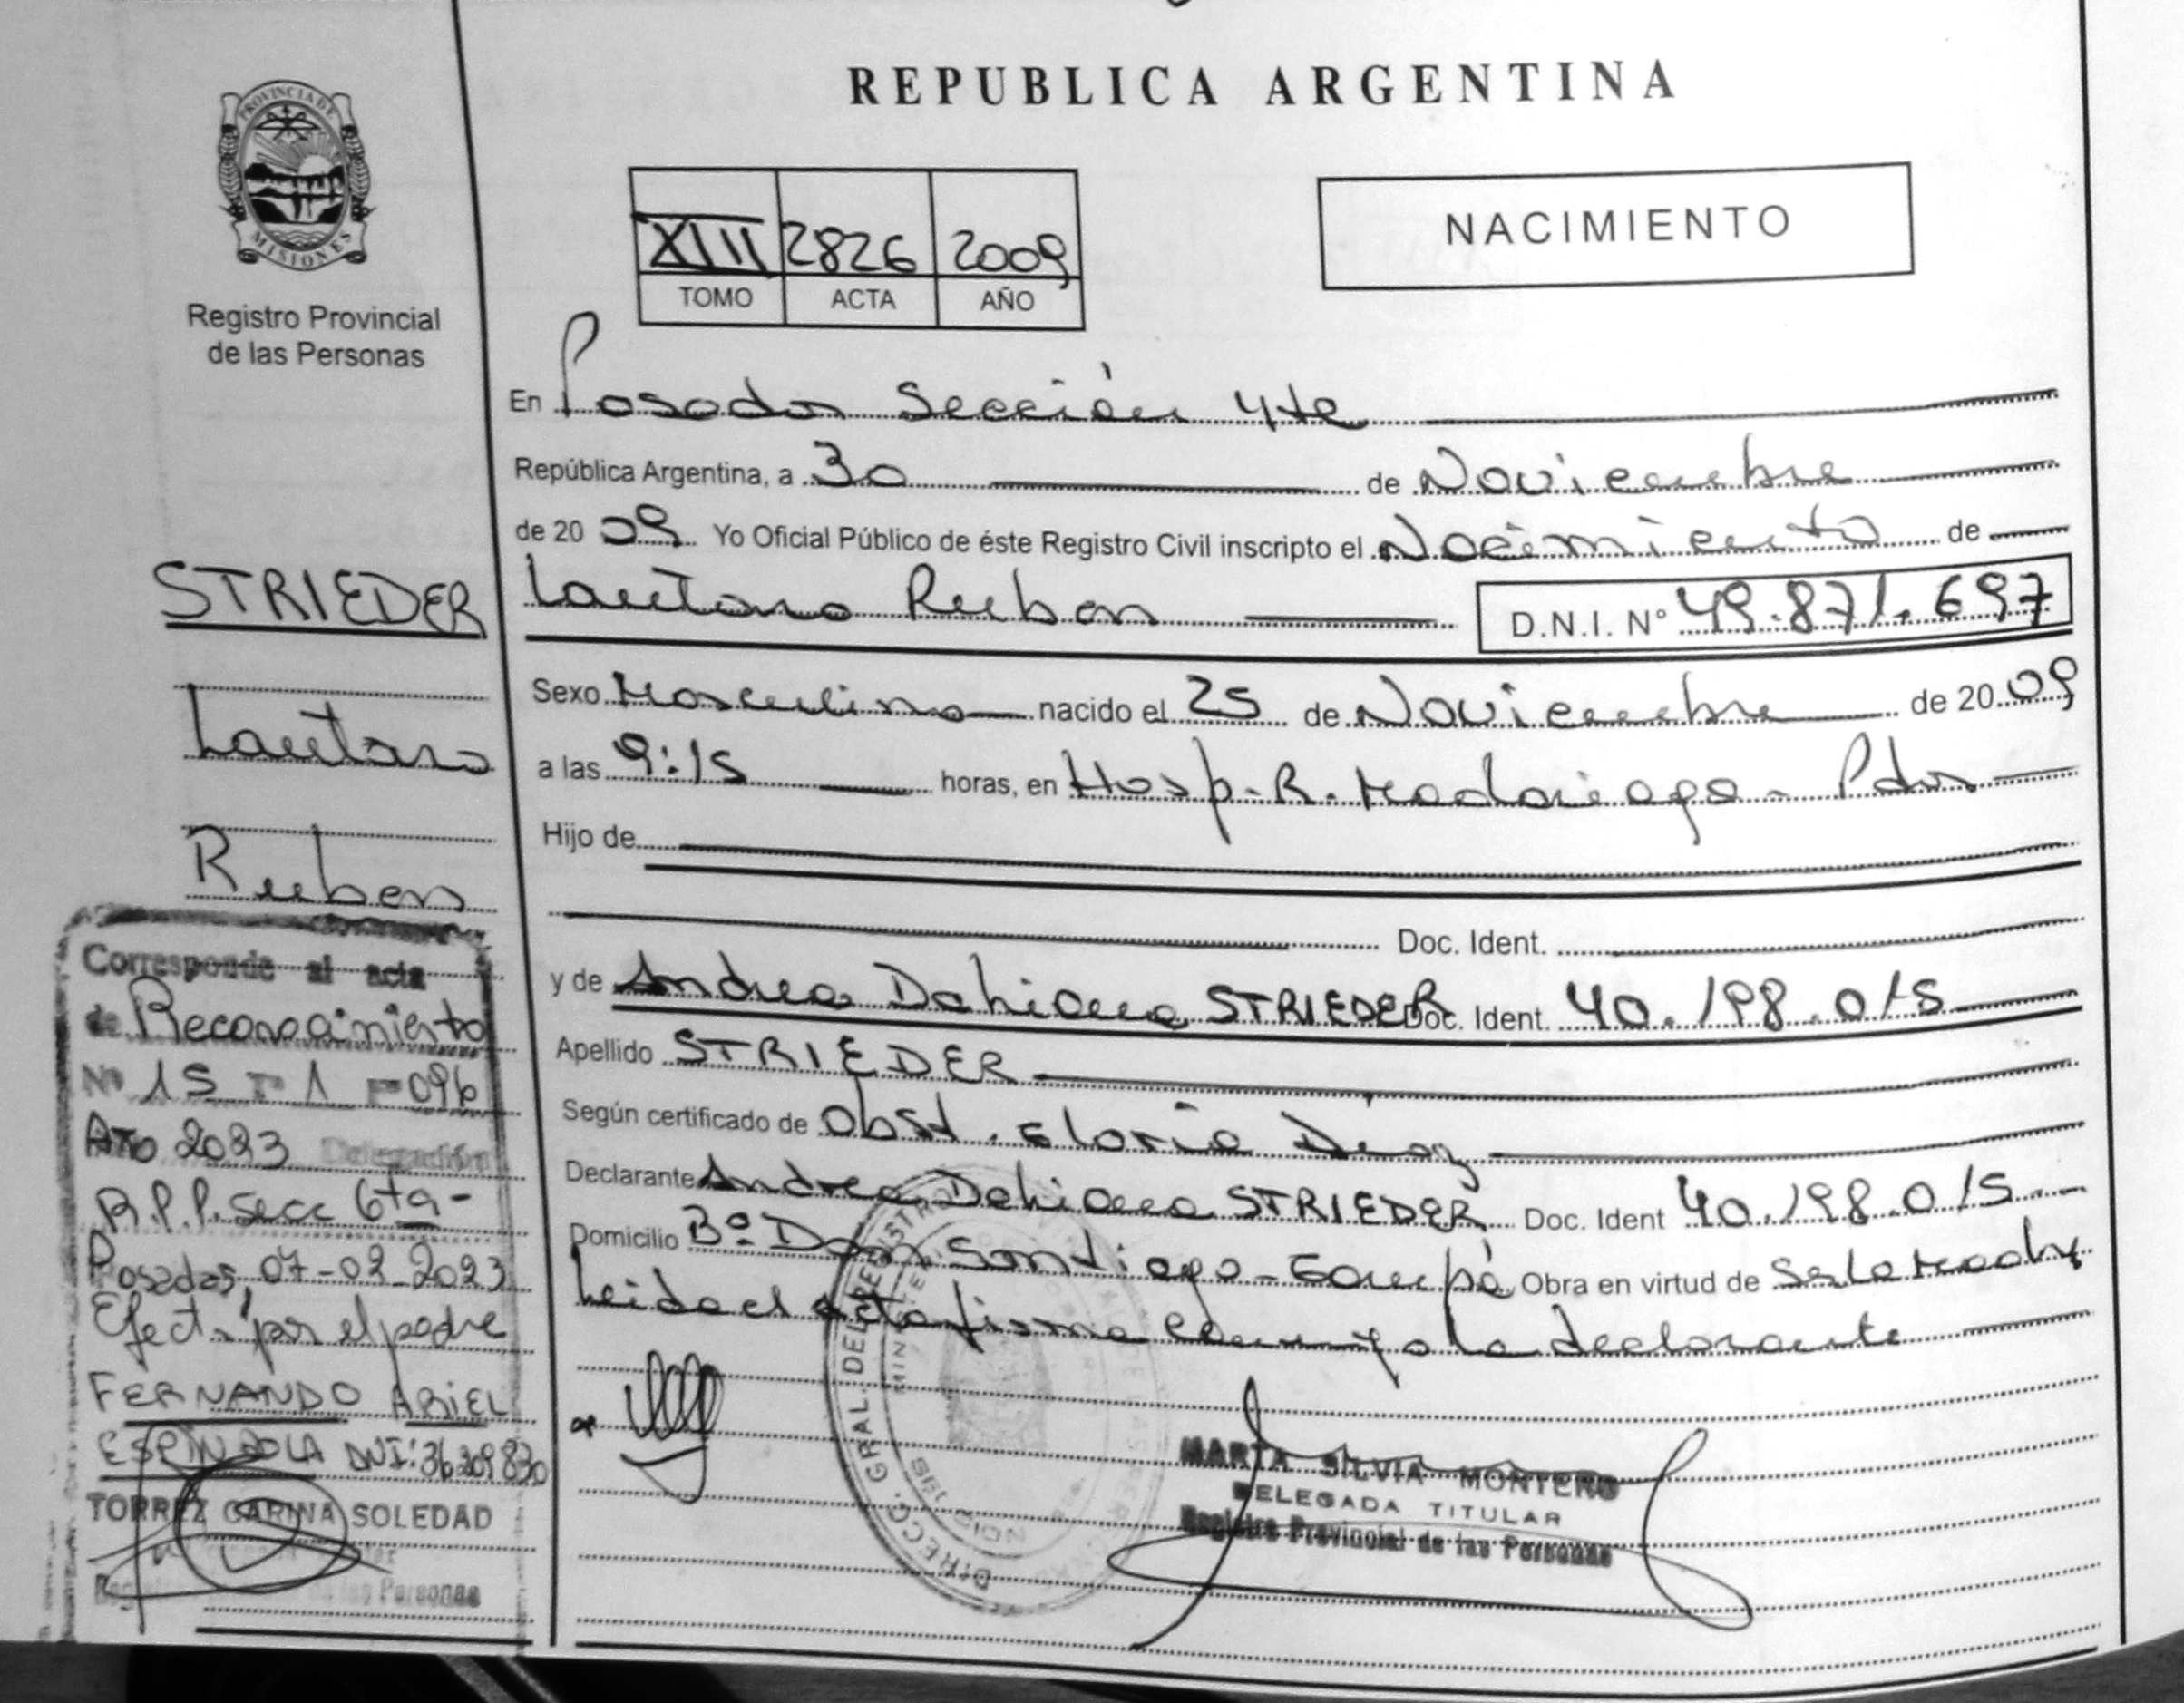 REPUBLICA ARGENTINA
PROVINCIA DE
MISIONES
Registro Provincial
de las Personas
XIII 2826 2009
TOMO ACTA AÑO
NACIMIENTO
En Posadas Sección 4ta
República Argentina, a 30 de Noviembre
de 20 09 Yo Oficial Público de éste Registro Civil inscripto el Nacimiento de
Lautaro Ruben D.N.I. Nº 49.871.697
Sexo Masculino nacido el 25 de Noviembre de 20 09
a las 9:15 horas, en Hosp. R. Madariaga - Pdas
Hijo de
Doc. Ident.
y de Andrea Dahiana STRIEDER Doc. Ident. 40.198.015
Apellido STRIEDER
Según certificado de Obst. Gloria
Declarante Andrea Dahiana STRIEDER Doc. Ident 40.198.015
Domicilio Bº Don Santiago - Garupá Obra en virtud de
Leida el acta firma conmigo la declarante
MARTA SILVIA MONTERO
DELEGADA TITULAR
Registro Provincial de las Personas
STRIEDER
Lautaro
Ruben
Corresponde al acta
de Reconocimiento
Nº 15 T 1 F 096
Año 2023 Delegación
R.P.P. Secc 6ta-
Posadas, 07-02-2023
Efect. por el padre
FERNANDO ARIEL
ESPINDOLA DNI: 36209830
TORREZ CARINA SOLEDAD
las Personas